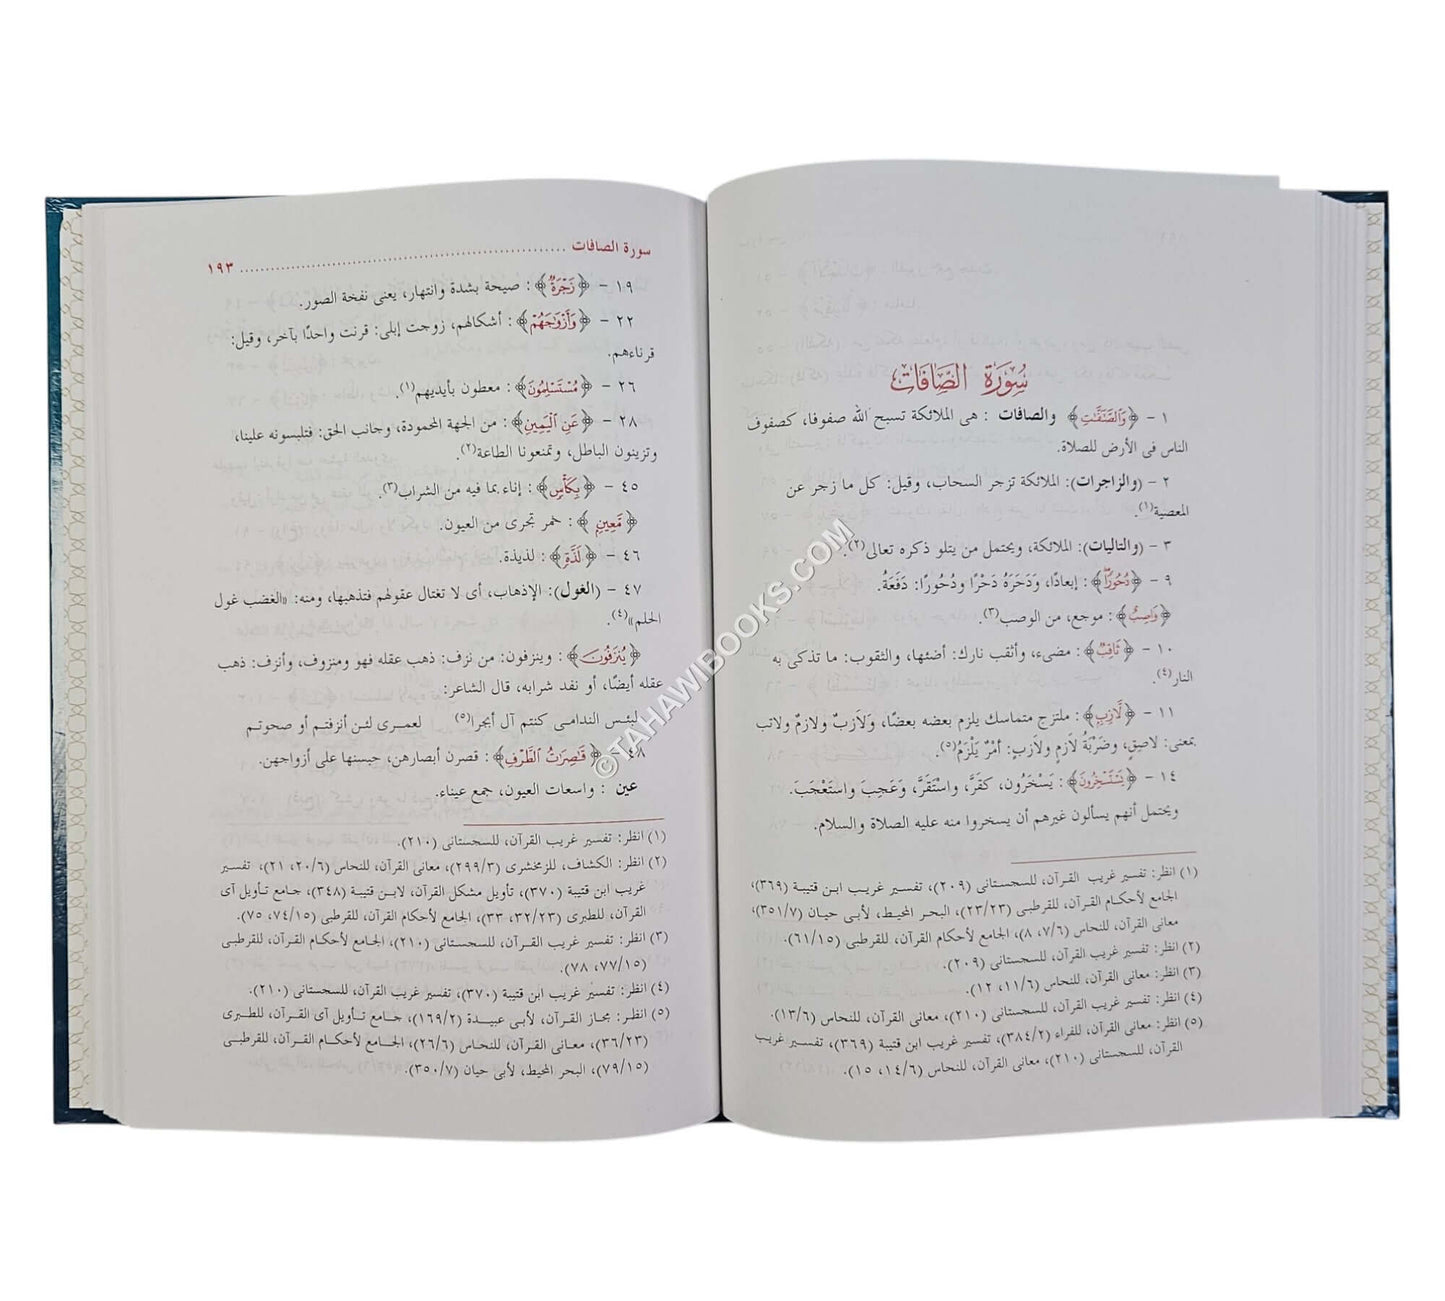 سورة الصافات
١ - ﴿وَالصَّٰٓفَّٰتِ﴾ والصافات : هى الملائكة تسبح الله صفوفا، كصفوف
الناس فى الأرض للصلاة.
٢ - (والزاجرات): الملائكة تزجر السحاب، وقيل: كل ما زجر عن
المعصية(١).
٣ - (والتاليات): الملائكة، ويحتمل من يتلو ذكره تعالى(٢).
٩ - ﴿دُحُورًا﴾: إبعادًا، وَدَحَرَهُ دَحْرًا ودُحُورًا: دَفَعَهُ.
﴿وَاصِبٌ﴾ : موجع، من الوصب(٣).
١٠ - ﴿ثَاقِبٌ﴾ : مضىء، وأثقب نارك: أضئها، والثقوب: ما تذكى به
النار(٤).
١١ - ﴿لَّازِبٍ﴾ : ملتزج متماسك يلزم بعضه بعضًا، وَلَازبٌ ولازمٌ ولاتب
بمعنى: لاصقٍ، وضَرْبَةُ لَازمٍ ولَازبٍ: أمْرٌ يَلْزَمُ(٥).
١٤ - ﴿يَسْتَسْخِرُونَ﴾ : يَسْخَرُون، كقَرَّ، واسْتَقَرَّ، وَعَجِبَ واستَعْجَبَ.
ويحتمل أنهم يسألون غيرهم أن يسخروا منه عليه الصلاة والسلام.
(١) انظر: تفسير غريب القرآن، للسجستانى (٢٠٩)، تفسير غريب ابن قتيبة (٣٦٩)،
الجامع لأحكام القرآن، للقرطبى (٢٣/٢٣)، البحر المحيط، لأبى حيان (٣٥١/٧)،
معانى القرآن، للنحاس (٧/٦، ٨)، الجامع لأحكام القرآن، للقرطبى (٦١/١٥).
(٢) انظر: تفسير غريب القرآن، للسجستانى (٢٠٩).
(٣) انظر: معانى القرآن، للنحاس (١١/٦، ١٢).
(٤) انظر: تفسير غريب القرآن، للسجستانى (٢١٠)، معانى القرآن، للنحاس (١٣/٦).
(٥) انظر: معانى القرآن، للفراء (٣٨٤/٢)، تفسير غريب ابن قتيبة (٣٦٩)، تفسير غريب
القرآن، للسجستانى (٢١٠)، معانى القرآن، للنحاس (١٤/٦، ١٥).
سورة الصافات ........................................................ ١٩٣
١٩ - ﴿زَجْرَةٌ﴾ : صيحة بشدة وانتهار، يعنى نفخة الصور.
٢٢ - ﴿وَأَزْوَٰجَهُمْ﴾ : أشكالهم، زوجت إبلى: قرنت واحدًا بآخر، وقيل:
قرناءهم.
٢٦ - ﴿مُسْتَسْلِمُونَ﴾ : معطون بأيديهم(١).
٢٨ - ﴿عَنِ ٱلْيَمِينِ﴾ : من الجهة المحمودة، وجانب الحق: فتلبسونه علينا،
وتزينون الباطل، وتمنعونا الطاعة(٢).
٤٥ - ﴿بِكَأْسٍ﴾ : إناء بما فيه من الشراب(٣).
﴿مَّعِينٍ﴾ : خمر تجرى من العيون.
٤٦ - ﴿لَذَّةٍ﴾ : لذيذة.
٤٧ - (الغول): الإذهاب، أى لا تغتال عقولهم فتذهبها، ومنه: «الغضب غول
الحلم»(٤).
﴿يُنزَفُونَ﴾ : وينزفون: من نزف: ذهب عقله فهو ومنزوف، وأنزف: ذهب
عقله أيضًا، أو نفد شرابه، قال الشاعر:
لعمرى لئن أنزفتم أو صحوتم لبئس الندامى كنتم آل أبجرا(٥)
٤٨ - ﴿قَٰصِرَٰتُ ٱلطَّرْفِ﴾ : قصرن أبصارهن، حبسنها على أزواجهن.
عين : واسعات العيون، جمع عيناء.
(١) انظر: تفسير غريب القرآن، للسجستانى (٢١٠).
(٢) انظر: الكشاف، للزمخشرى (٢٩٩/٣)، معانى القرآن، للنحاس (٢٠/٦، ٢١)، تفسير
غريب ابن قتيبة (٣٧٠)، تأويل مشكل القرآن، لابن قتيبة (٣٤٨)، جامع تأويل آى
القرآن، للطبرى (٣٢/٢٣، ٣٣)، الجامع لأحكام القرآن، للقرطبى (٧٤/١٥، ٧٥).
(٣) انظر: تفسير غريب القرآن، للسجستانى (٢١٠)، الجامع لأحكام القرآن، للقرطبى
(٧٧/١٥، ٧٨).
(٤) انظر: تفسير غريب ابن قتيبة (٣٧٠)، تفسير غريب القرآن، للسجستانى (٢١٠).
(٥) انظر: مجاز القرآن، لأبى عبيدة (١٦٩/٢)، جامع تأويل آى القرآن، للطبرى
(٣٦/٢٣)، معانى القرآن، للنحاس (٢٦/٦)، الجامع لأحكام القرآن، للقرطبى
(٧٩/١٥)، البحر المحيط، لأبى حيان (٣٥٠/٧).
©TAHAWIBOOKS.COM